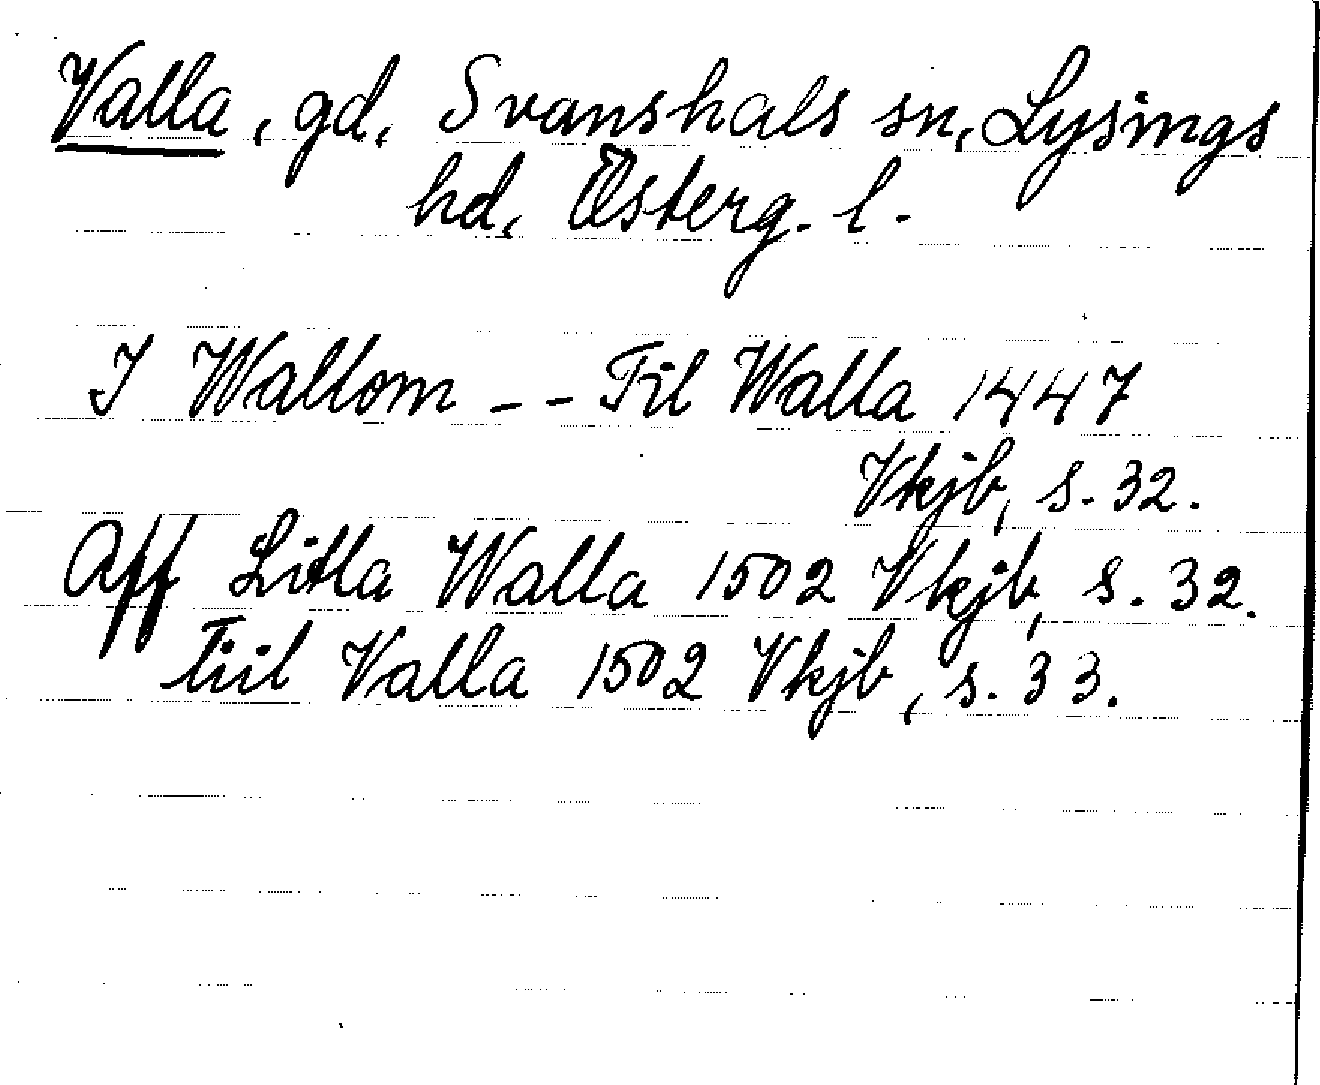 Valla, gd, Svanshals sn, Lysings
hd, Österg. l.
I Wallom - - Til Walla 1447
Vkjb, s. 32.
Aff Litla Walla 1502 Vkjb, s. 32.
tiil Valla 1502 Vkjb, s. 33.